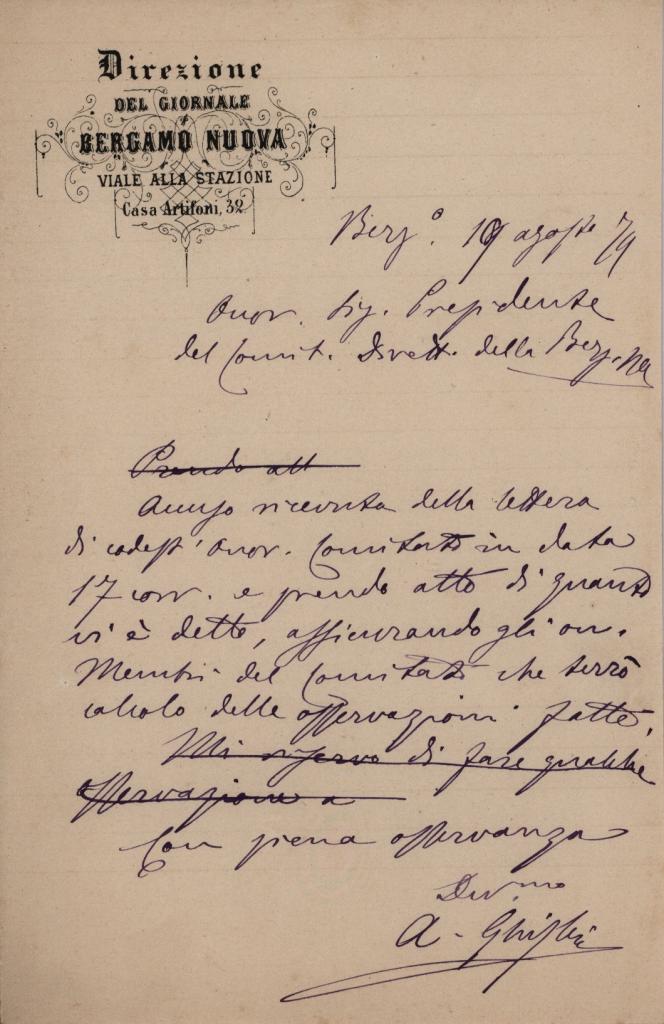 Direzione
DEL GIORNALE
BERGAMO NUOVA
VIALE ALLA STAZIONE
Casa Artifoni, 32
Berg.o 19 agosto 79
Onor. Sig. Presidente
del Comit. Dirett. della Berg. Na
Prendo att
Accuso ricevuta della lettera
di codest' onor. Comitato in data
17 corr. e prendo atto di quanto
vi è detto, assicurando gli on.
Membri del Comitato che terrò
calcolo delle osservazioni fatte.
Mi riservo di fare qualche
osservazione a
Con piena osservanza
Dev.mo
A. Ghisleri